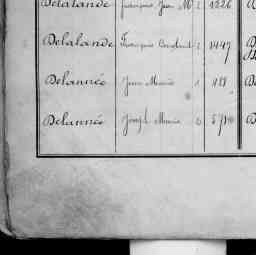 Delalande François Jean M 2 1226
Delalande François Constant 2 1447
Delannée Jean Marie 1 488
Delannée Joseph Marie 5 571